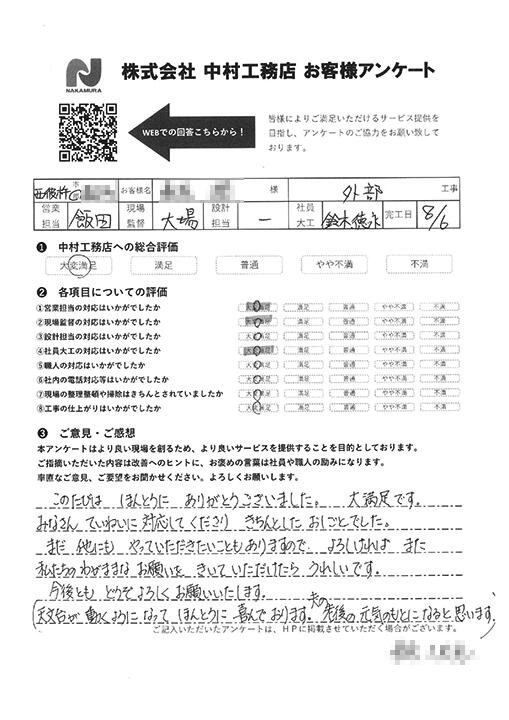 NAKAMURA
株式会社 中村工務店 お客様アンケート
WEBでの回答こちらから！
皆様によりご満足いただけるサービス提供を
目指し、アンケートのご協力をお願い致して
おります。
市 お客様名 様 外部 工事
営業担当 飯田 現場監督 大場 設計担当 ー 社員大工 鈴木 完工日 8/6
❶ 中村工務店への総合評価
大変満足 満足 普通 やや不満 不満
❷ 各項目についての評価
①営業担当の対応はいかがでしたか 大変満足 満足 普通 やや不満 不満
②現場監督の対応はいかがでしたか 大変満足 満足 普通 やや不満 不満
③設計担当の対応はいかがでしたか 大変満足 満足 普通 やや不満 不満
④社員大工の対応はいかがでしたか 大変満足 満足 普通 やや不満 不満
⑤職人の対応はいかがでしたか 大変満足 満足 普通 やや不満 不満
⑥社内の電話対応等はいかがでしたか 大変満足 満足 普通 やや不満 不満
⑦現場の整理整頓や掃除はきちんとされていましたか 大変満足 満足 普通 やや不満 不満
⑧工事の仕上がりはいかがでしたか 大変満足 満足 普通 やや不満 不満
❸ ご意見・ご感想
本アンケートはより良い現場を創るため、より良いサービスを提供することを目的としております。
ご指摘いただいた内容は改善へのヒントに、お褒めの言葉は社員や職人の励みになります。
率直なご意見、ご要望をお聞かせください。よろしくお願いします。
このたびは ほんとうに ありがとうございました。 大満足です。
みなさん ていねいに 対応してくださり きちんとした おしごとでした。
まだ 他にも やっていただきたいこともありますので、よろしければ また
私たちのわがままな お願いを きいていただけたら うれしいです。
今後とも どうぞよろしくお願いいたします。
(天文台が動くようになって ほんとうに 喜んでおります。夫の 老後の 元気のもとになると思います)
ご記入いただいたアンケートは、HPに掲載させていただく場合がございます。